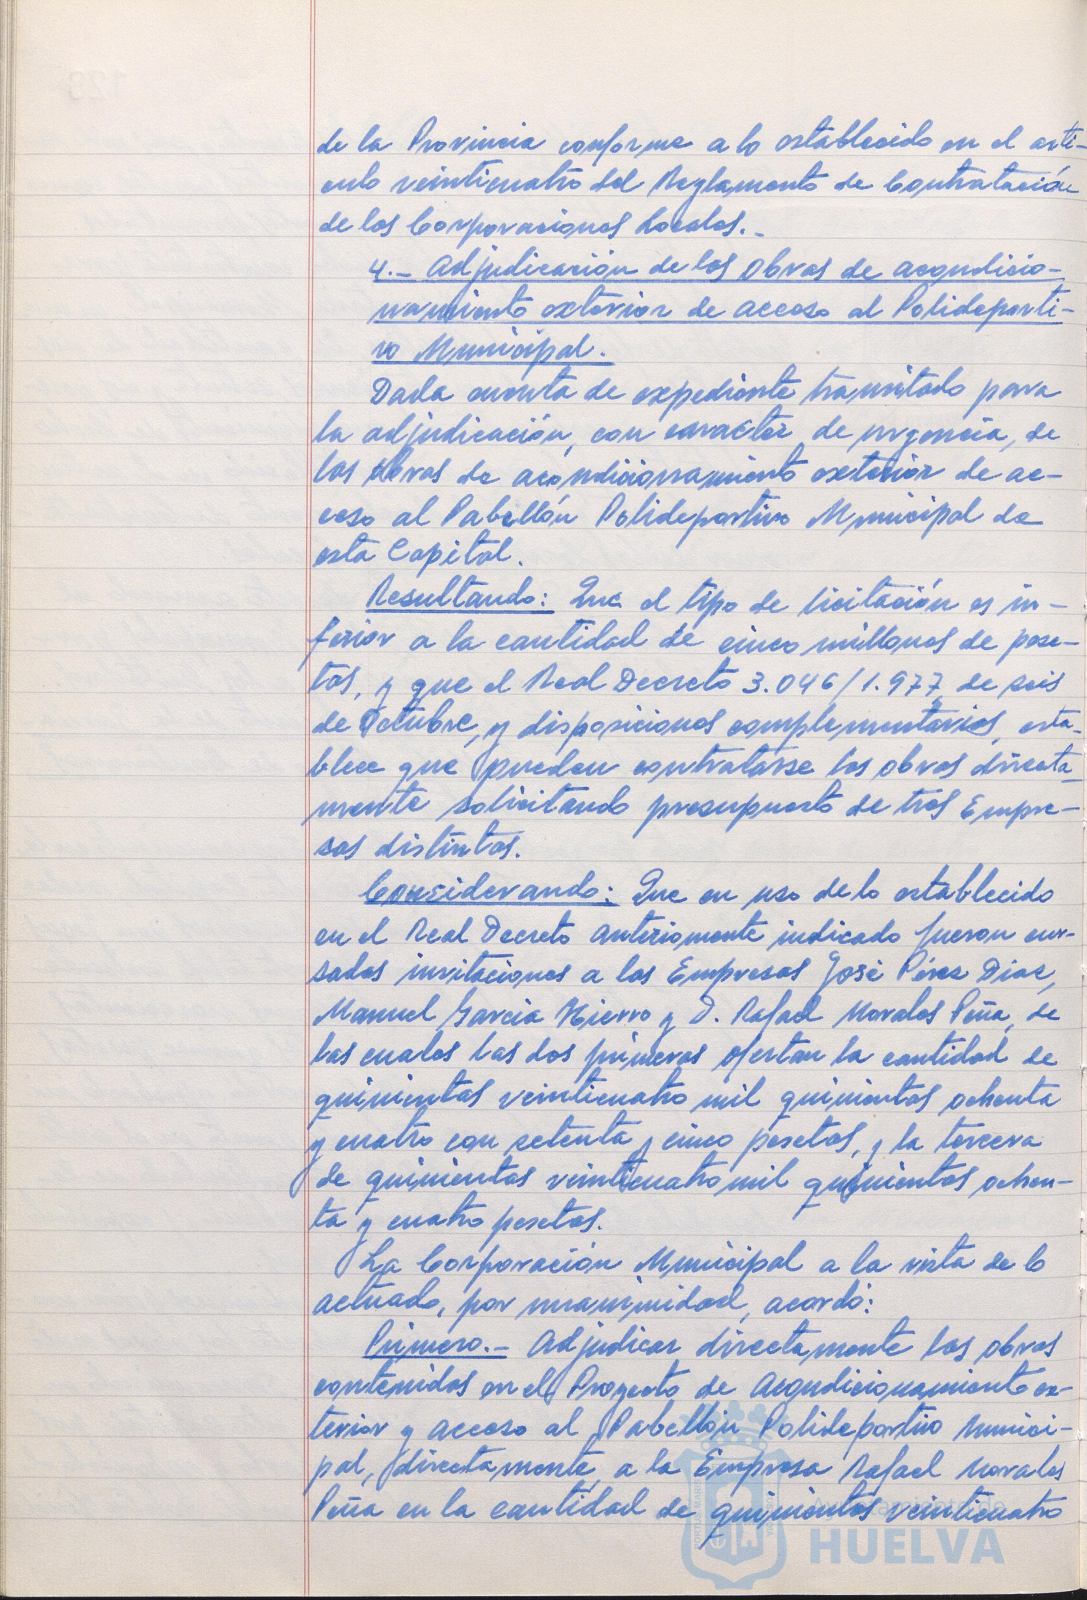 de la Provincia conforme a lo establecido en el artí-
culo veinticuatro del Reglamento de Contratación
de las Corporaciones Locales.-
4.- Adjudicación de las Obras de acondicio-
namiento exterior de acceso al Polideporti-
vo Municipal.
Dada cuenta de expediente tramitado para
la adjudicación, con caracter de urgencia, de
las Obras de acondicionamiento exterior de ac-
ceso al Pabellón Polideportivo Municipal de
esta Capital.
Resultando: Que el tipo de licitación es in-
ferior a la cantidad de cinco millones de pese-
tas, y que el Real Decreto 3.046/1.977, de seis
de Octubre, y disposiciones complementarias, esta-
blece que pueden contratarse las obras directa-
mente solicitando presupuesto de tres Empre-
sas distintas.
Considerando: Que en uso de lo establecido
en el Real Decreto anteriomente indicado fueron cur-
sadas invitaciones a las Empresas José Pérez Diaz,
Manuel García Hierro y D. Rafael Morales Peña, de
las cuales las dos primeras ofertan la cantidad de
quinientas veinticuatro mil quinientas ochenta
y cuatro con setenta y cinco pesetas, y la tercera
de quinientas veinticuatro mil quinientas ochen-
ta y cuatro pesetas.
La Corporación Municipal a la vista de lo
actuado, por unanimidad, acordó:
Primero.- Adjudicar directamente las obras
contenidas en el Proyecto de Acondicionamiento ex-
terior y acceso al Pabellón Polideportivo Munici-
pal, directamente, a la Empresa Rafael Morales
Peña en la cantidad de quinientas veinticuatro
Ayuntamiento de
HUELVA